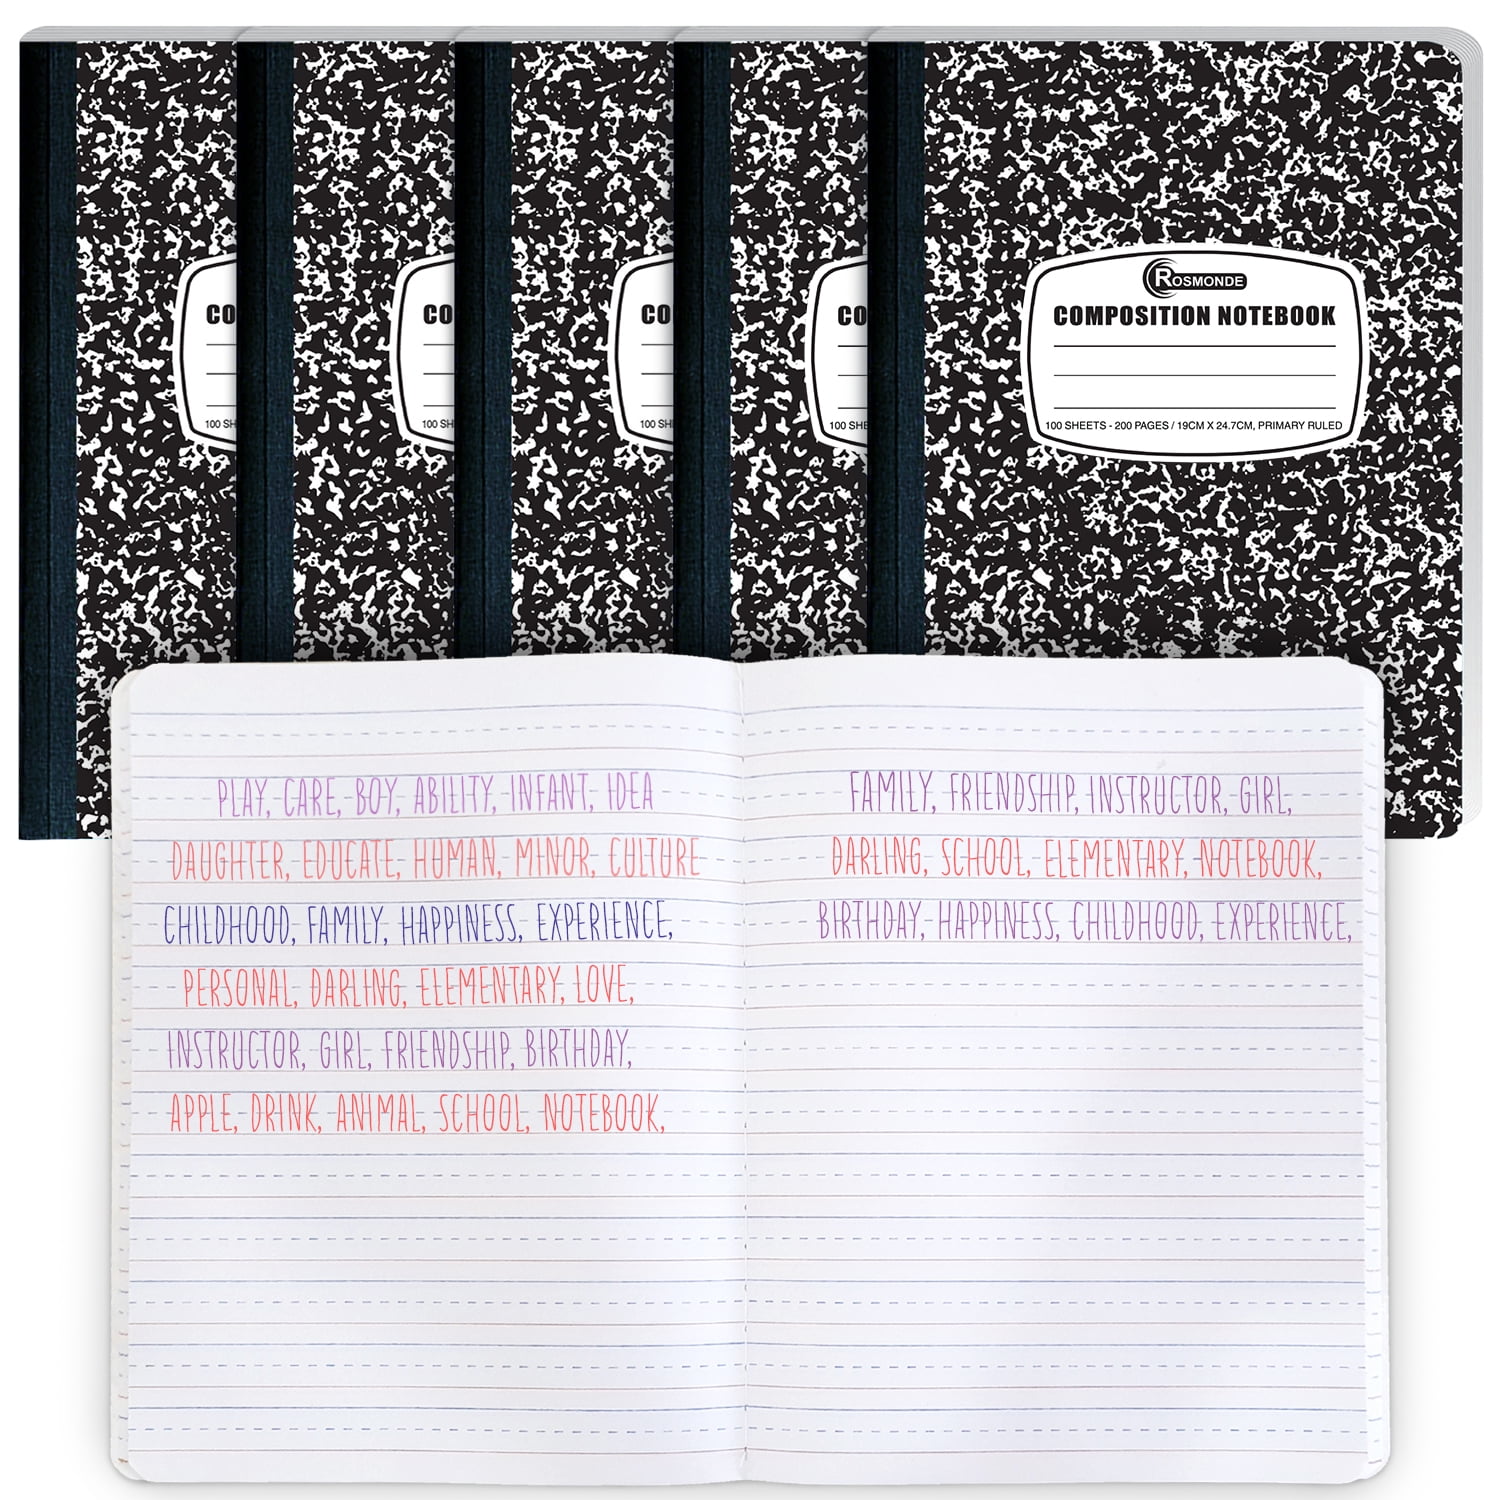 CO
100 SH
CO
100 SH
CO
100 SH
CO
100 SHE
ROSMONDE
COMPOSITION NOTEBOOK
100 SHEETS - 200 PAGES / 19CM X 24.7CM, PRIMARY RULED
PLAY, CARE, BOY, ABILITY, INFANT, IDEA
DAUGHTER, EDUCATE, HUMAN, MINOR, CULTURE
CHILDHOOD, FAMILY, HAPPINESS, EXPERIENCE,
PERSONAL, DARLING, ELEMENTARY, LOVE,
INSTRUCTOR, GIRL, FRIENDSHIP, BIRTHDAY,
APPLE, DRINK, ANIMAL, SCHOOL, NOTEBOOK,
FAMILY, FRIENDSHIP, INSTRUCTOR, GIRL,
DARLING, SCHOOL, ELEMENTARY, NOTEBOOK,
BIRTHDAY, HAPPINESS, CHILDHOOD, EXPERIENCE,